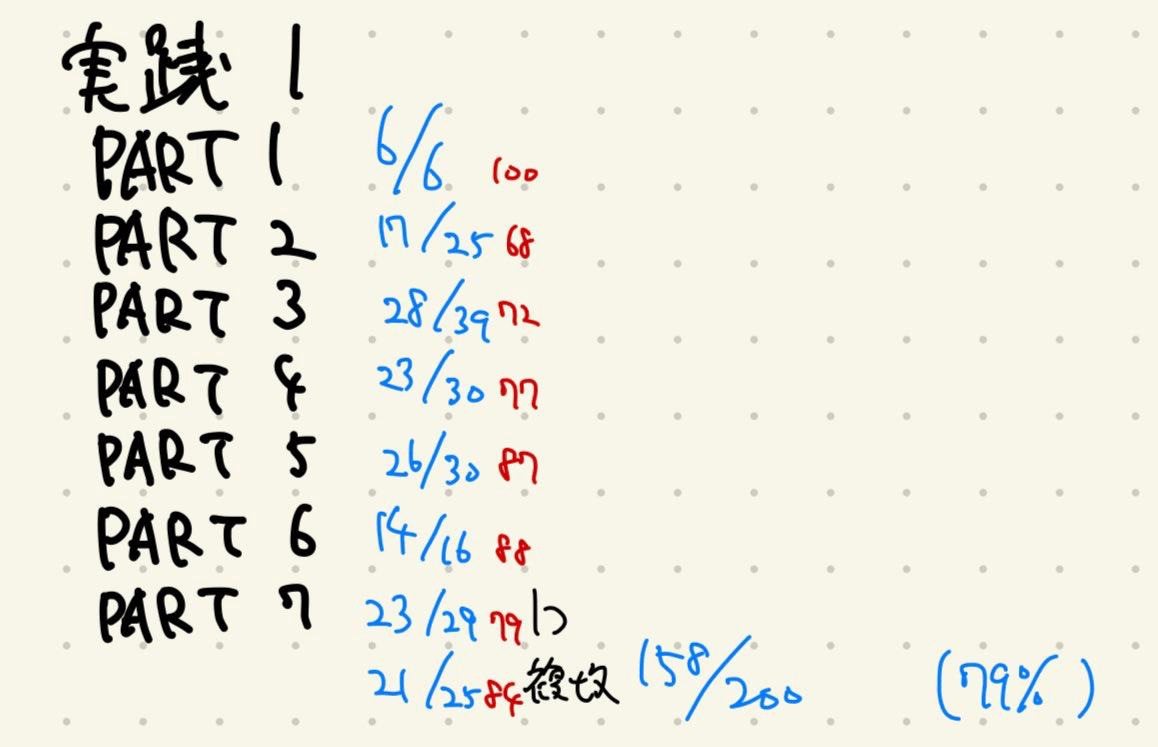 実践 1
PART 1 6/6 100
PART 2 17/25 68
PART 3 28/39 72
PART 4 23/30 77
PART 5 26/30 87
PART 6 14/16 88
PART 7 23/29 79 1つ
21/25 84 複数 158/200 (79%)